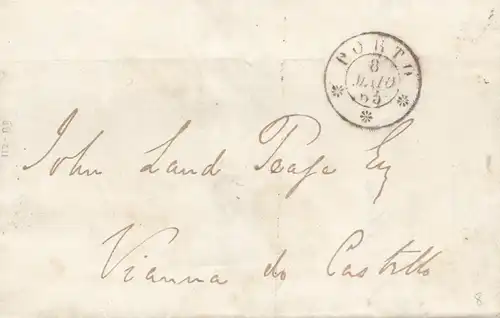 PORTO
8
MAIO
John Land Pease Esq
Vianna do Castello
8